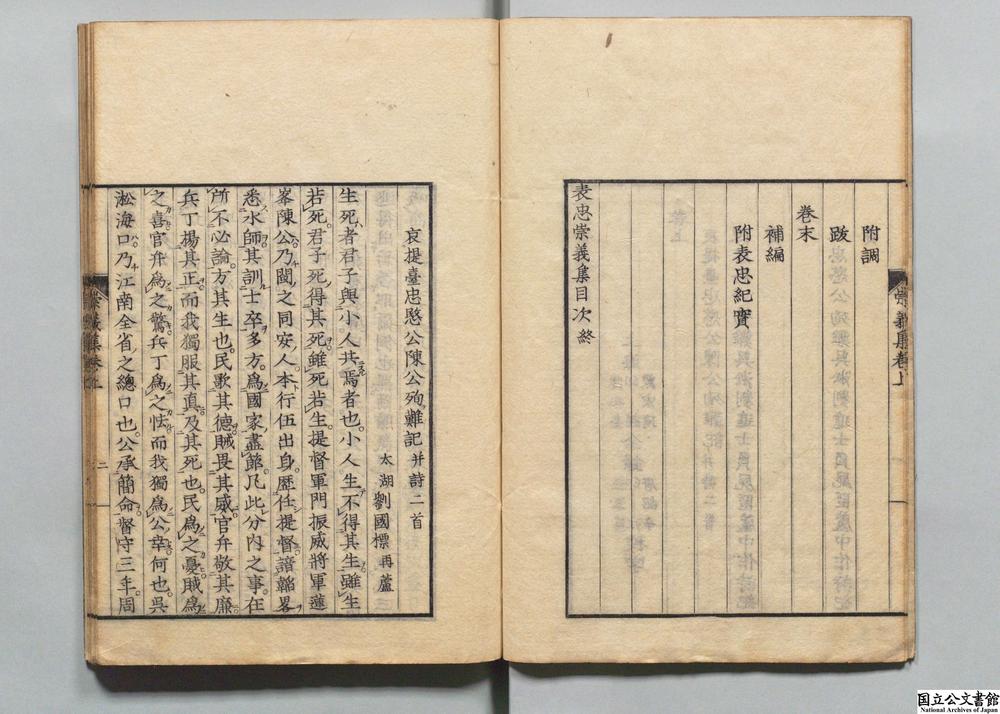 附調
跋
卷末
補編
附表忠紀實
表忠崇義集目次終
崇義集卷上
哀提臺忠愍公陳公殉難記 并詩二首
太湖劉國標再蘆
生死者君子與小人共焉者也小人生不得其生雖生
若死君子死得其死雖死若生提督軍門振威將軍蓮
峯陳公乃閩之同安人本行伍出身歷任提督諳韜畧
悉水師其訓士卒多方為國家盡節凡此分內之事在
所不必論方其生也民歌其德賊畏其威官弁敬其廉
兵丁揚其正而我獨服其真及其死也民為之憂賊為
之喜官弁為之驚兵丁為之怯而我獨為公幸何也吳
淞海口乃江南全省之總口也公承簡命督守三年周
崇義集卷上
二
国立公文書館
National Archives of Japan